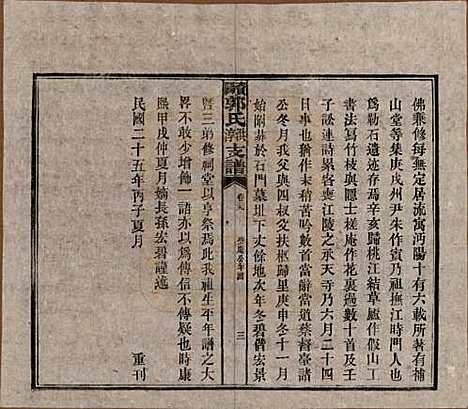 佛乘修每無定居流寓沔陽十有六載所著有補
山堂等集庚戌州尹朱作賓乃祖撫江時門人也
為勒石遺迹存焉辛亥歸桃江結草廬作假山工
書法寫竹枝與隱士槎庵作花裏過數十首壬
子訟連詩累客喪江陵之承天寺乃六月二十四
日事也猶作末稍苦吟數首當辭當道葵督臺諸
公冬月我父與四叔父扶柩歸里庚申冬十一月
始闢葬於石門墓垇下丈餘地次年冬碧偕宏景
續郭氏雜支譜
卷之
三
暨三弟修祠堂以享祭焉此我祖生平年譜之大
畧不敢少增飾一語亦以為傳信不傳疑也時康
熙甲戌仲夏月嫡長孫宏碧謹述
民國二十五年丙子夏月
重刊